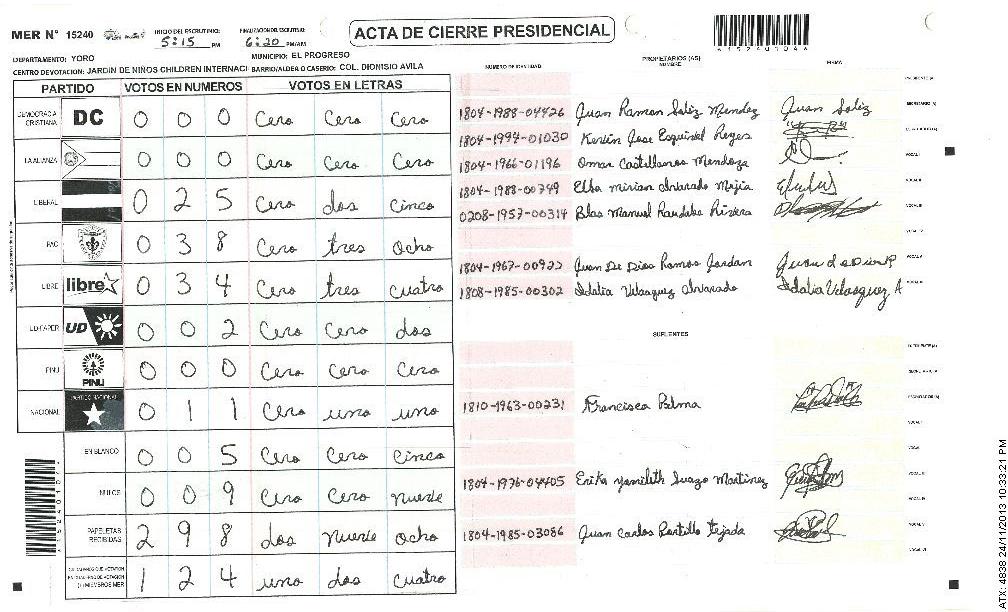 MER N° 15240
INICIO DEL ESCRUTINIO: 5:15 PM
FINALIZACION DEL ESCRUTINIO: 6:20 PM/AM
ACTA DE CIERRE PRESIDENCIAL
DEPARTAMENTO: YORO
MUNICIPIO: EL PROGRESO
CENTRO DE VOTACION: JARDIN DE NIÑOS CHILDREN INTERNACI BARRIO/ALDEA O CASERIO: COL. DIONISIO AVILA
PARTIDO VOTOS EN NUMEROS VOTOS EN LETRAS
DEMOCRACIA CRISTIANA DC 0 0 0 Cero Cero Cero
LA ALIANZA 0 0 0 Cero Cero Cero
LIBERAL 0 2 5 Cero dos Cinco
PAC 0 3 8 Cero tres ocho
LIBRE libre 0 3 4 Cero tres cuatro
UD FAPER UD 0 0 2 Cero Cero dos
PINU PINU 0 0 0 Cero Cero Cero
NACIONAL PARTIDO NACIONAL 0 1 1 Cero uno uno
EN BLANCO 0 0 5 Cero Cero Cinco
NULOS 0 0 9 Cero Cero nueve
PAPELETAS RECIBIDAS 2 9 8 dos nueve ocho
1 2 4 uno dos cuatro
NUMERO DE IDENTIDAD PROPIETARIOS (AS) NOMBRE FIRMA
1804-1988-04426 Juan Ramon Soliz Mendez Juan Soliz
1804-1994-01030 Kevin Jose Esquivel Reyes
1804-1966-01196 Omar Castellanos Mendoza
1804-1988-00749 Elba mirian alvarado Mejia
0208-1957-00314 Blas Manuel Rivera
1804-1967-00922 Juan De Dios Ramos Jordan
1808-1985-00302 Idalia Velasquez alvarado Idalia Velasquez A
SUPLENTES
1810-1963-00231 Francisca Palma
1804-1976-04405 Erika yamileth Suazo Martinez
1804-1985-03086 Juan Carlos Portillo tejada
ATX: 4838 24/11/2013 10:33:21 PM